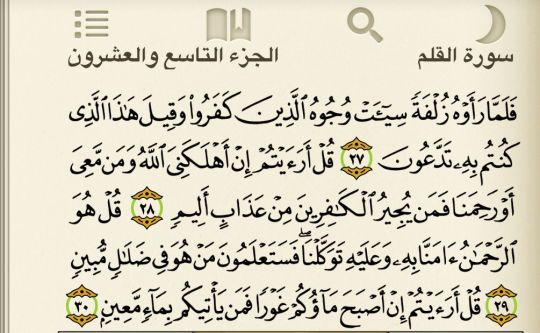 سورة القلم الجزء التاسع والعشرون
فَلَمَّا رَأَوْهُ زُلْفَةً سِيٓـَٔتْ وُجُوهُ ٱلَّذِينَ كَفَرُوا۟ وَقِيلَ هَٰذَا ٱلَّذِى
كُنتُم بِهِۦ تَدَّعُونَ ٢٧ قُلْ أَرَءَيْتُمْ إِنْ أَهْلَكَنِىَ ٱللَّهُ وَمَن مَّعِىَ
أَوْ رَحِمَنَا فَمَن يُجِيرُ ٱلْكَٰفِرِينَ مِنْ عَذَابٍ أَلِيمٍ ٢٨ قُلْ هُوَ
ٱلرَّحْمَٰنُ ءَامَنَّا بِهِۦ وَعَلَيْهِ تَوَكَّلْنَا ۖ فَسَتَعْلَمُونَ مَنْ هُوَ فِى ضَلَٰلٍ مُّبِينٍ
٢٩ قُلْ أَرَءَيْتُمْ إِنْ أَصْبَحَ مَآؤُكُمْ غَوْرًا فَمَن يَأْتِيكُم بِمَآءٍ مَّعِينٍۭ ٣٠